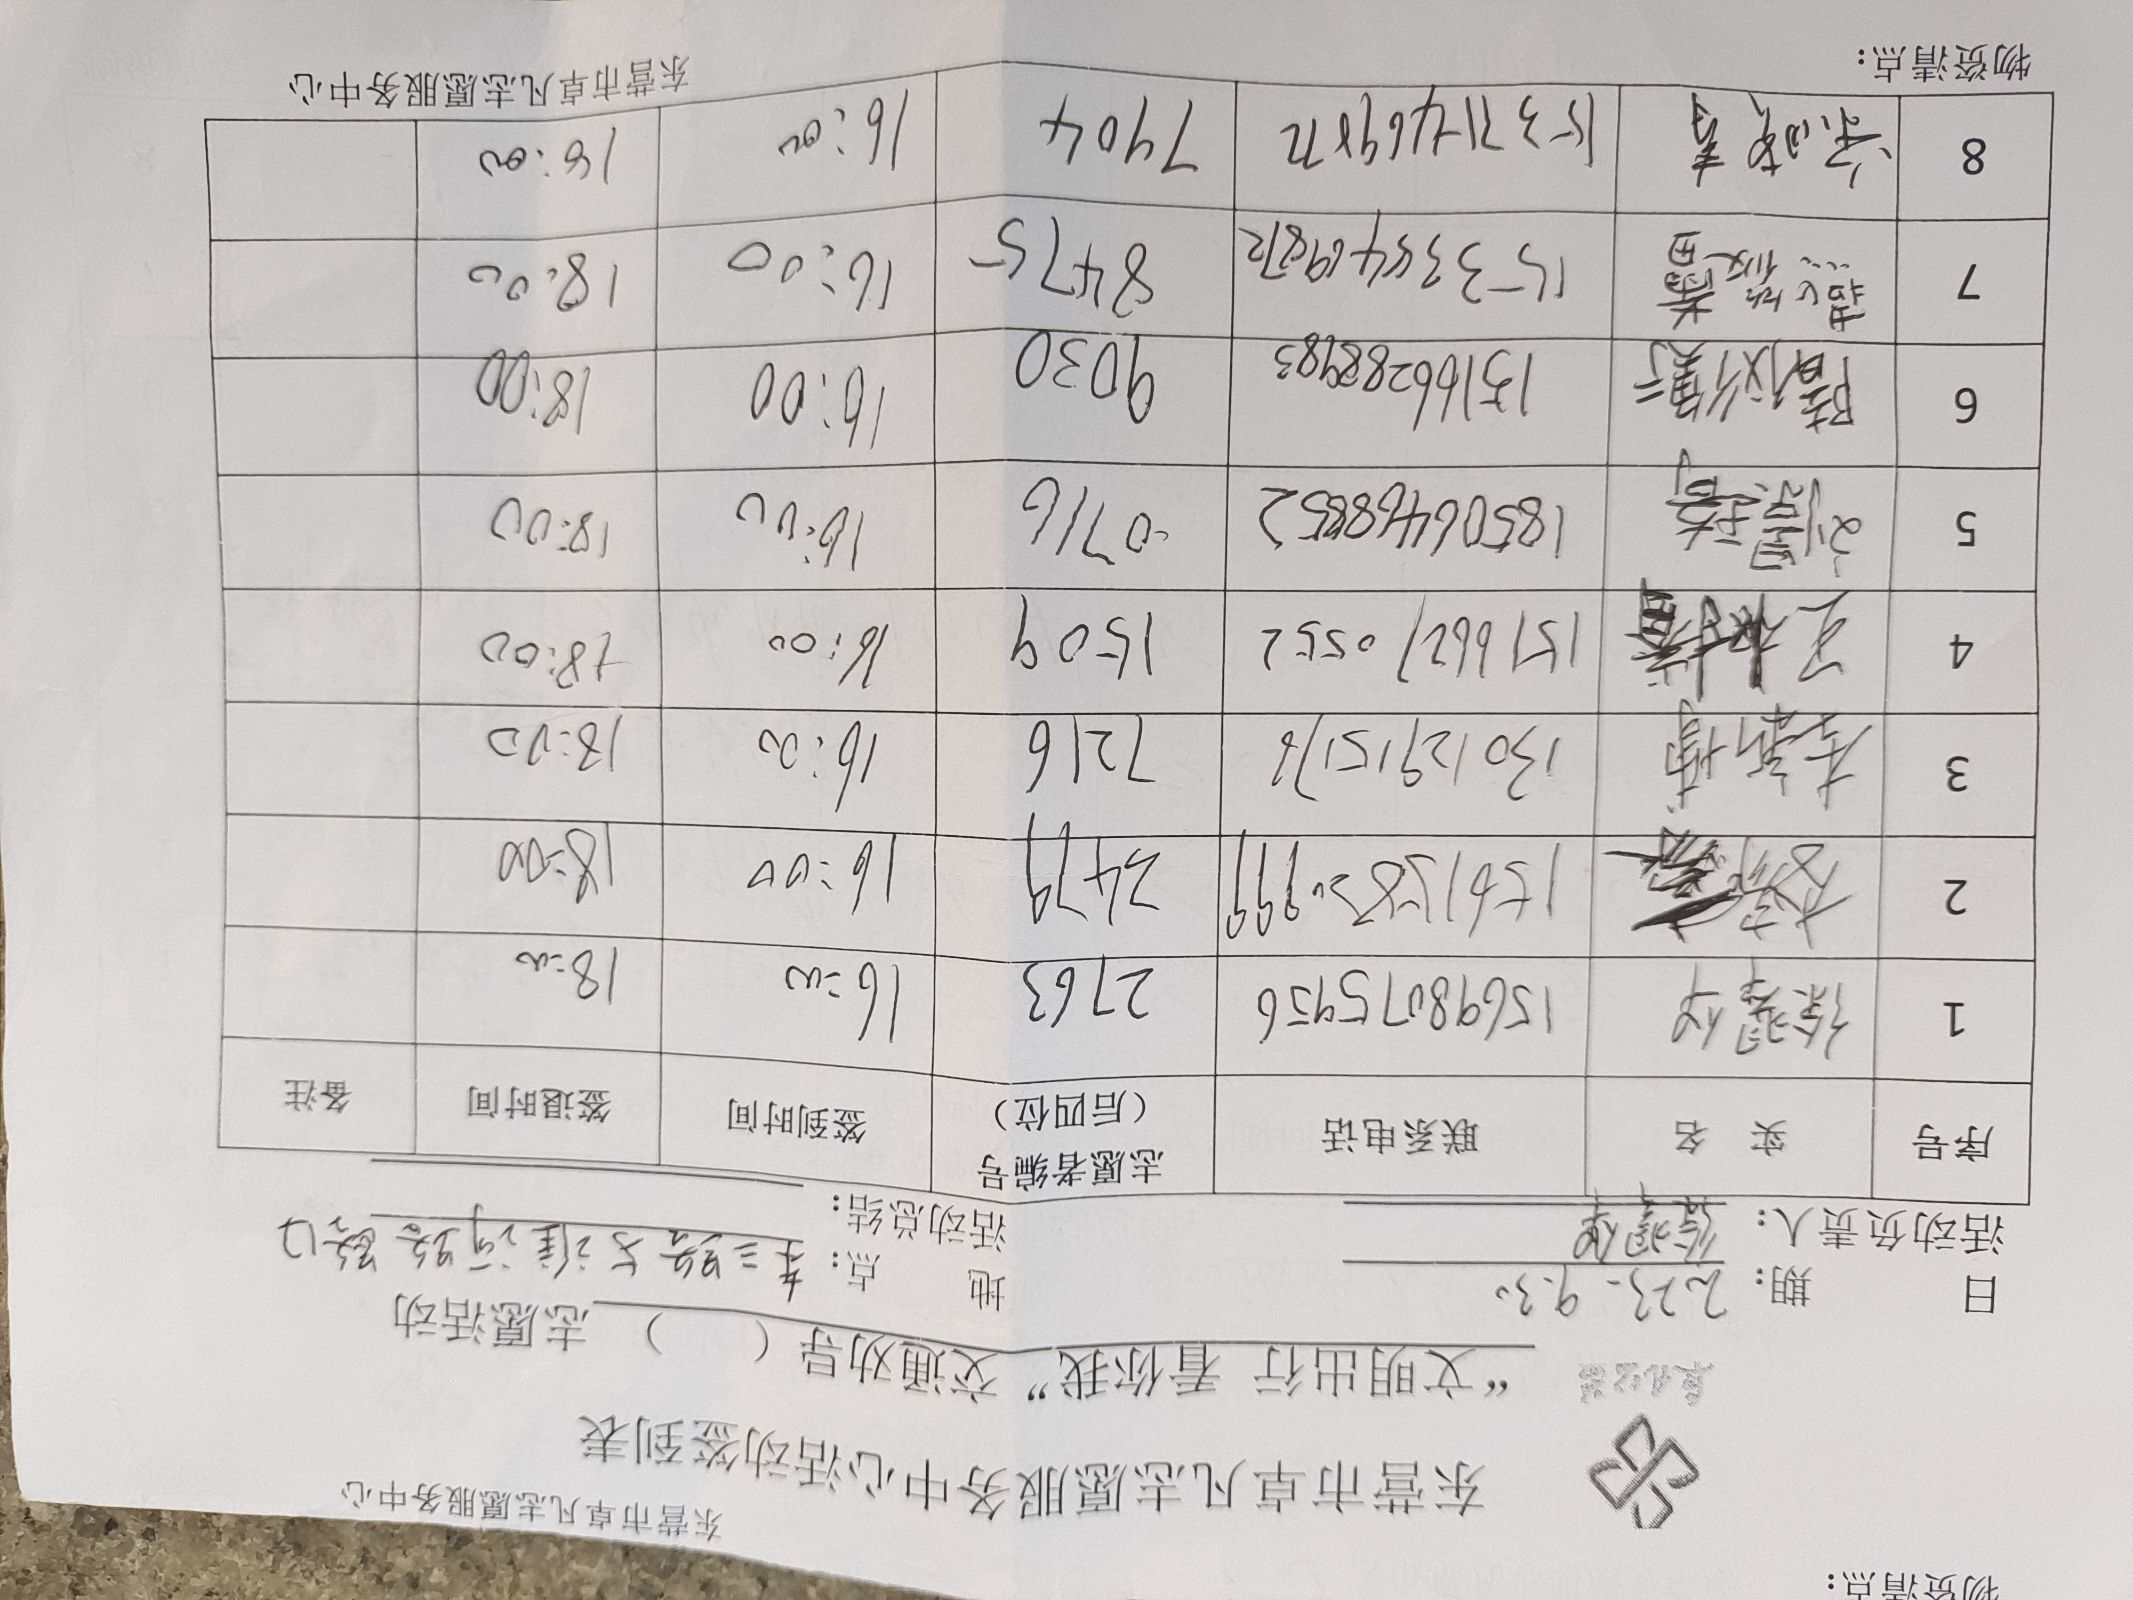 物资清点：
东营市卓凡志愿服务中心
东营市卓凡志愿服务中心活动签到表
“文明出行 看你我”交通劝导（ ）志愿活动
日 期： 2023-9.30 地 点： 东三路与淮河路路口
活动负责人： 徐翠华 活动总结：
序号 实 名 联系电话 志愿者编号（后四位） 签到时间 签退时间 备注
1 徐翠华 15698075956 2763 16:00 18:00
2 2479 16:00 18:00
3 13012915176 7216 16:00 18:00
4 15166270552 1509 16:00 18:00
5 18506468852 0716 16:00 18:00
6 15166288983 9030 16:00 18:00
7 8475 16:00 18:00
8 15371469872 7904 16:00 18:00
物资清点：
东营市卓凡志愿服务中心